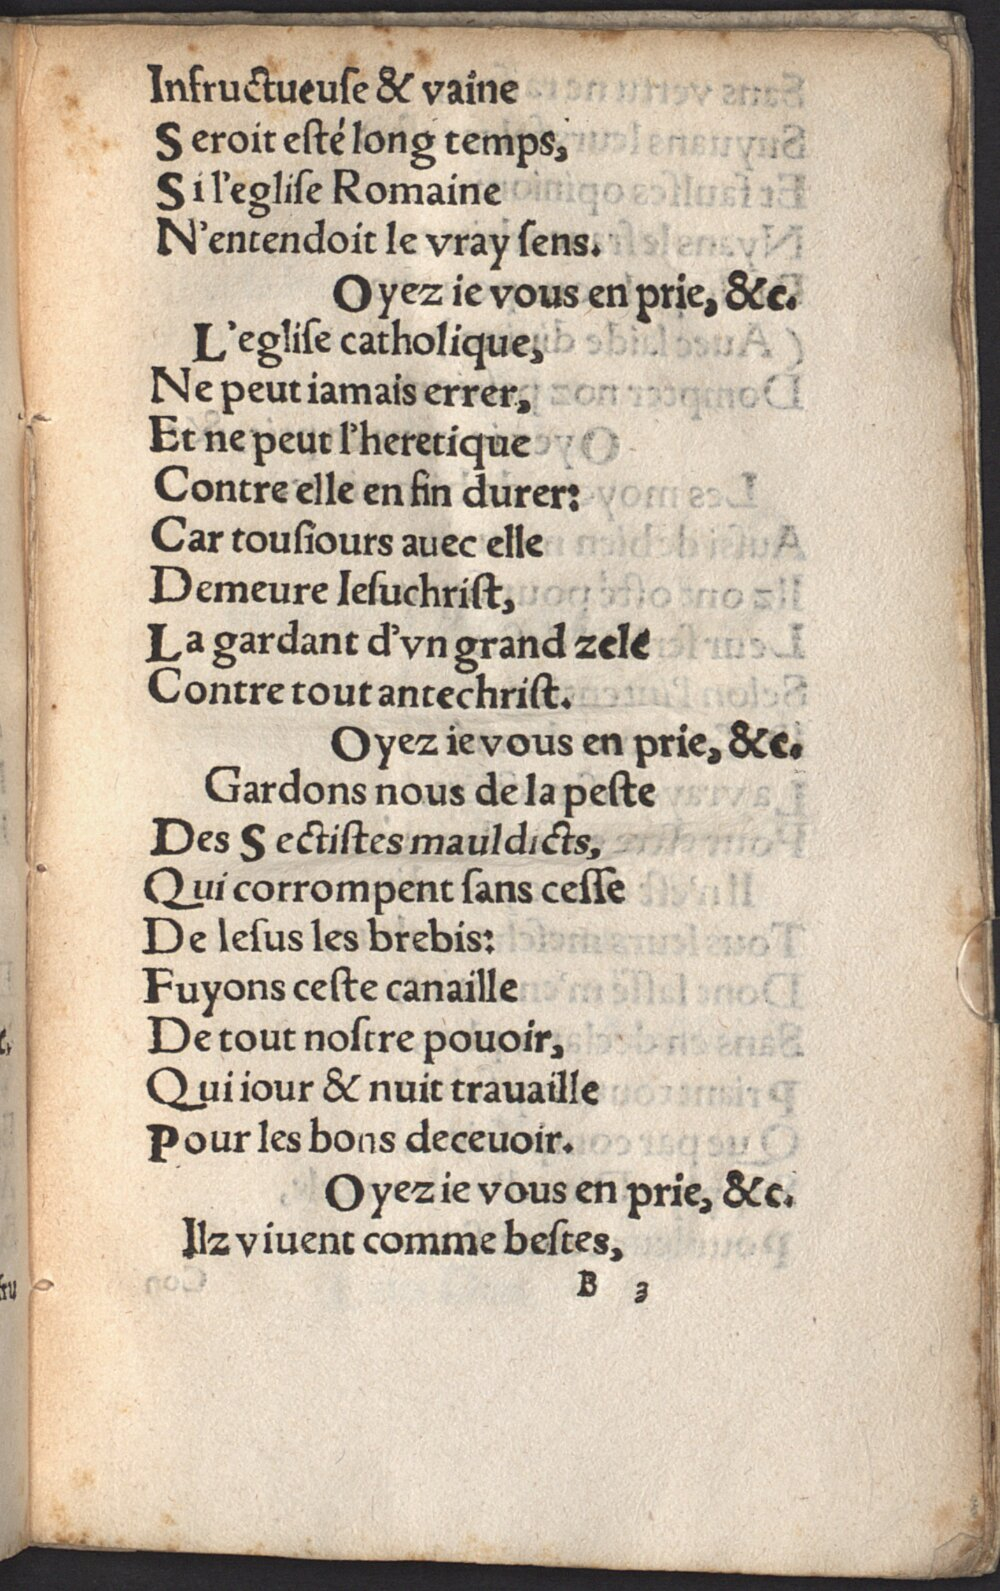 Infructueuſe & vaine
Seroit eſté long temps,
Si l'egliſe Romaine
N'entendoit le vray ſens.
Oyez ie vous en prie, &c.
L'egliſe catholique,
Ne peut iamais errer,
Et ne peut l'heretique
Contre elle en fin durer:
Car touſiours auec elle
Demeure Ieſuchriſt,
La gardant d'vn grand zele
Contre tout antechriſt.
Oyez ie vous en prie, &c.
Gardons nous de la peſte
Des Sectiſtes mauldicts,
Qui corrompent ſans ceſſe
De Ieſus les brebis:
Fuyons ceſte canaille
De tout noſtre pouoir,
Qui iour & nuit trauaille
Pour les bons deceuoir.
Oyez ie vous en prie, &c.
Ilz viuent comme beſtes,
B 3